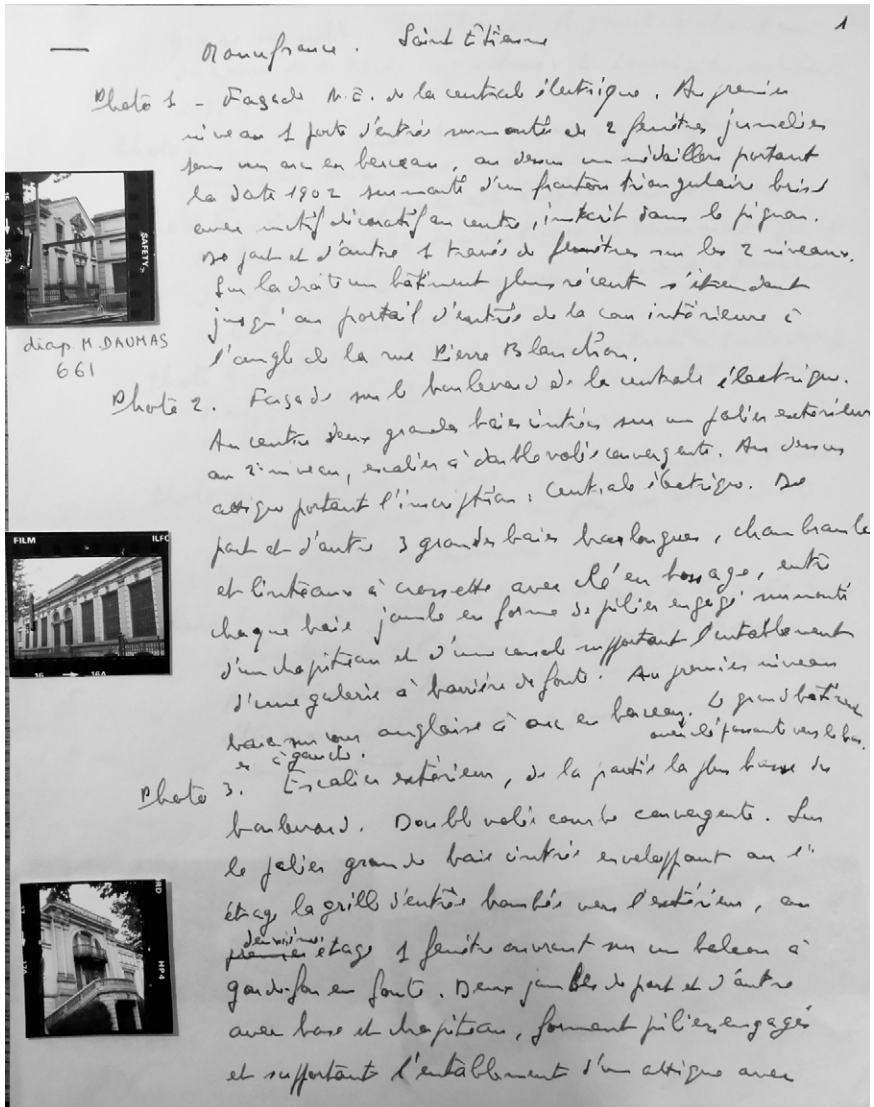 1
Manufrance. Saint Etienne
Photo 1 - Façade N.E. de la central électrique. Au premier
niveau 1 porte d'entrée surmontée de 2 fenêtres jumelées
sous un arc en berceau, au dessus un médaillon portant
la date 1902 surmonté d'un fronton triangulaire brisé
avec motif décoratif au centre, inscrit dans le pignon.
De part et d'autre 1 travée de fenêtres sur les 2 niveaux.
Sur la droite un bâtiment plus récent s'étendant
jusqu'au portail d'entrée de la cour intérieure à
l'angle de la rue Pierre Blanchon.
SAFETY
15A
diap. M. DAUMAS
661
Photo 2. Façade sur le boulevard de la centrale électrique.
Au centre deux grandes baies cintrées sur un palier extérieur
au 2e niveau, escalier à double volée convergente. Au dessus
attique portant l'inscription : Centrale électrique. De
part et d'autre 3 grandes baies barlongues, chambranle
et linteaux à crossette avec clé en bossage, entre
chaque baie jambe en forme de pilier engagé surmonté
d'un chapiteau et d'une console supportant l'entablement
d'une galerie à barrière de fonte. Au premier niveau
baie sur cour anglaise à arc en berceau, avec clé passante vers le bas. Le grand bâtiment
est à gauche.
FILM ILFO
16 → 16A
Photo 3. Escalier extérieur, de la partie la plus basse du
boulevard. Double volée courbe convergente. Sur
le palier grande baie cintrée enveloppant au 1er
étage la grille d'entrée bombée vers l'extérieur, au
deuxième étage 1 fenêtre ouvrant sur un balcon à
garde-fou en fonte. Deux jambes de part et d'autre
avec base et chapiteau, forment piliers engagés
et supportant l'entablement d'un attique avec
RD
HP4
17A